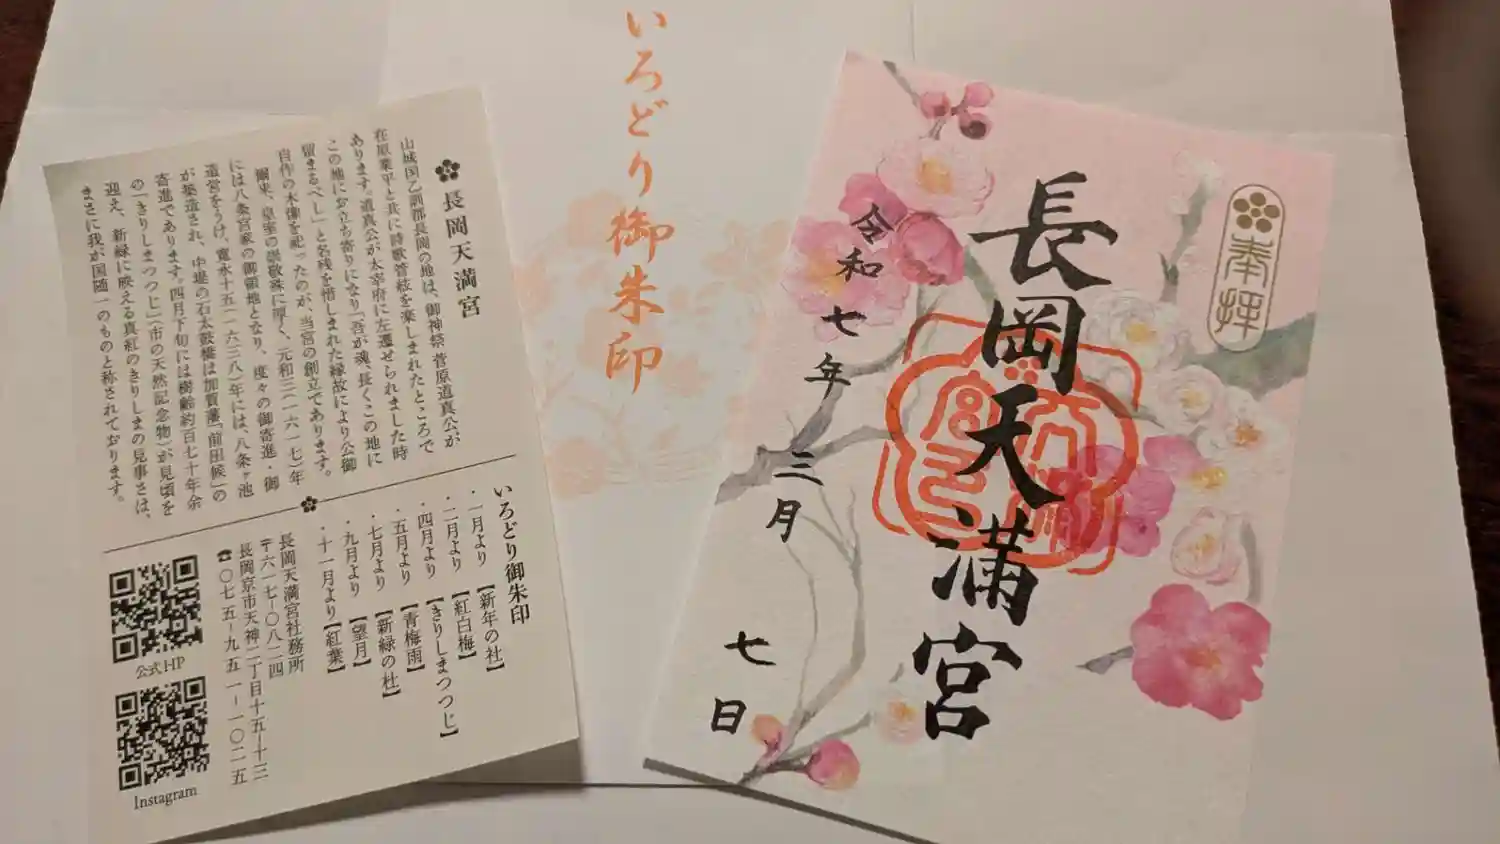 奉拝
長岡天満宮
令和七年三月七日
いろどり御朱印
長岡天満宮
山城国乙訓郡長岡の地は、御神祭 菅原道真公が
在原業平と共に詩歌管絃を楽しまれたところで
あります。道真公が太宰府に左遷せられました時
この地にお立ち寄りになり「吾が魂、長くこの地に
留まるべし」と名残を惜しまれた縁故により公御
自作の木像を祀ったのが、当宮の創立であります。
爾来、皇室の崇敬殊に厚く、元和三(一六一七)年
には八条宮家の御領地となり、度々の御寄進・御
造営をうけ、寛永十五(一六三八)年には、八条ヶ池
が築造され、中堤の石太鼓橋は加賀藩「前田候」の
寄進であります。四月下旬には樹齢約百七十年余
の「きりしまつつじ」(市の天然記念物)が見頃を
迎え、新緑に映える真紅のきりしまの見事さは、
まさに我が国随一のものと称されております。
いろどり御朱印
・一月より【新年の社】
・二月より【紅白梅】
・四月より【きりしまつつじ】
・五月より【青梅雨】
・七月より【新緑の杜】
・九月より【望月】
・十一月より【紅葉】
長岡天満宮社務所
〒六一七-〇八二四
長岡京市天神二丁目十五-十三
☎〇七五-九五一-一〇二五
公式HP
Instagram